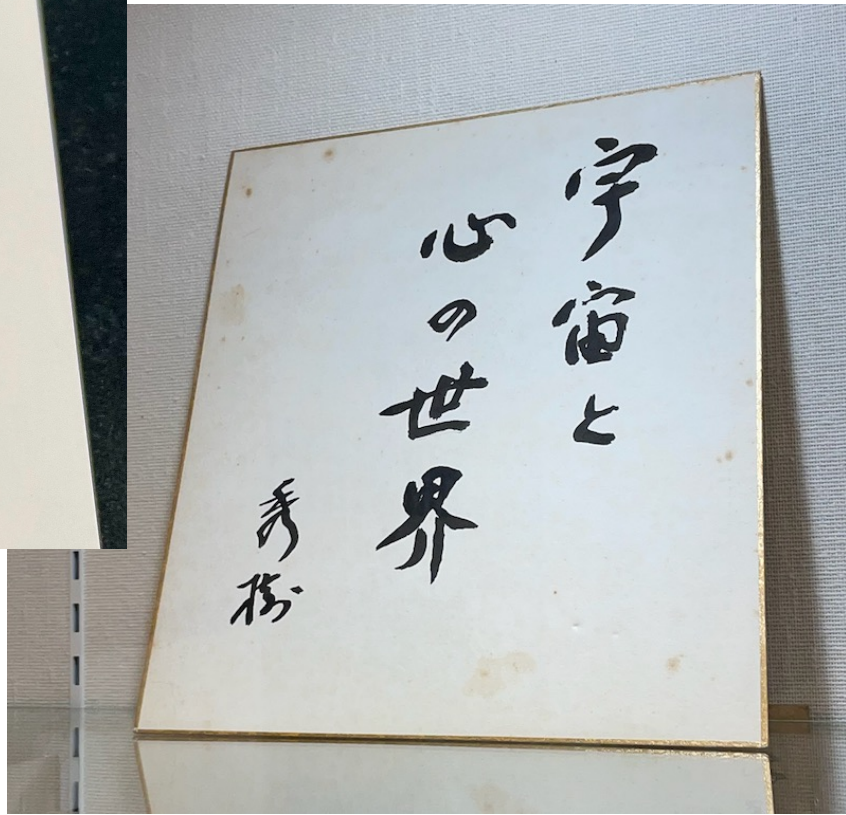 宇宙と
心の世界
秀樹